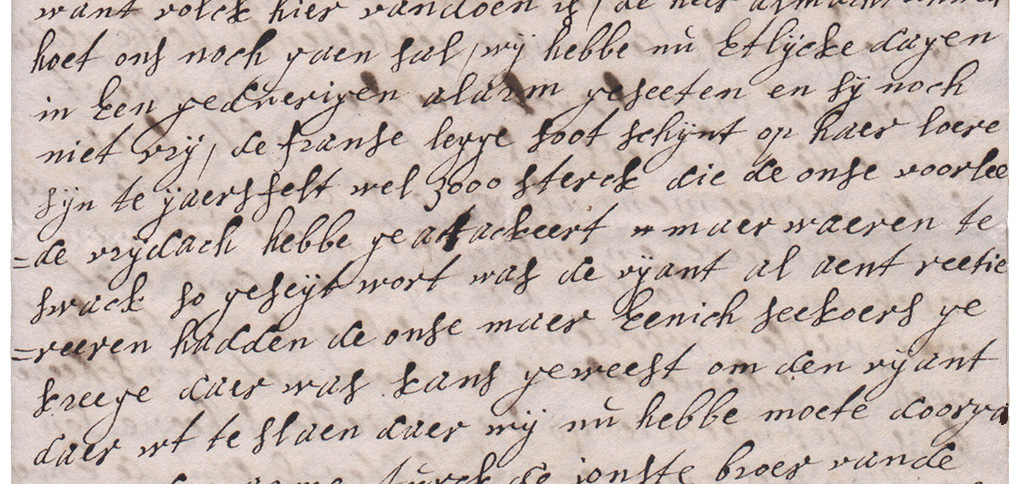 want volck hier vandoen is, de heer
hoet ons noch gaen sal, wij hebbe nu Etlijcke dagen
in Een geduerigen alarm geseeten en sij noch
niet vrij, de franse legge soot schijnt op haer loere
sijn te ijaersfelt wel 3000 sterck die de onse voorlee
=de vrijdach hebbe geattackeert maer waeren te
swack so geseijt wort was de vijant al aent reetie
=reeren hadden de onse maer Eenich seekoers ge
kreege daer was kans geweest om den vijant
daer wt te slaen daer wij nu hebbe moete
turck de jonste broer vande